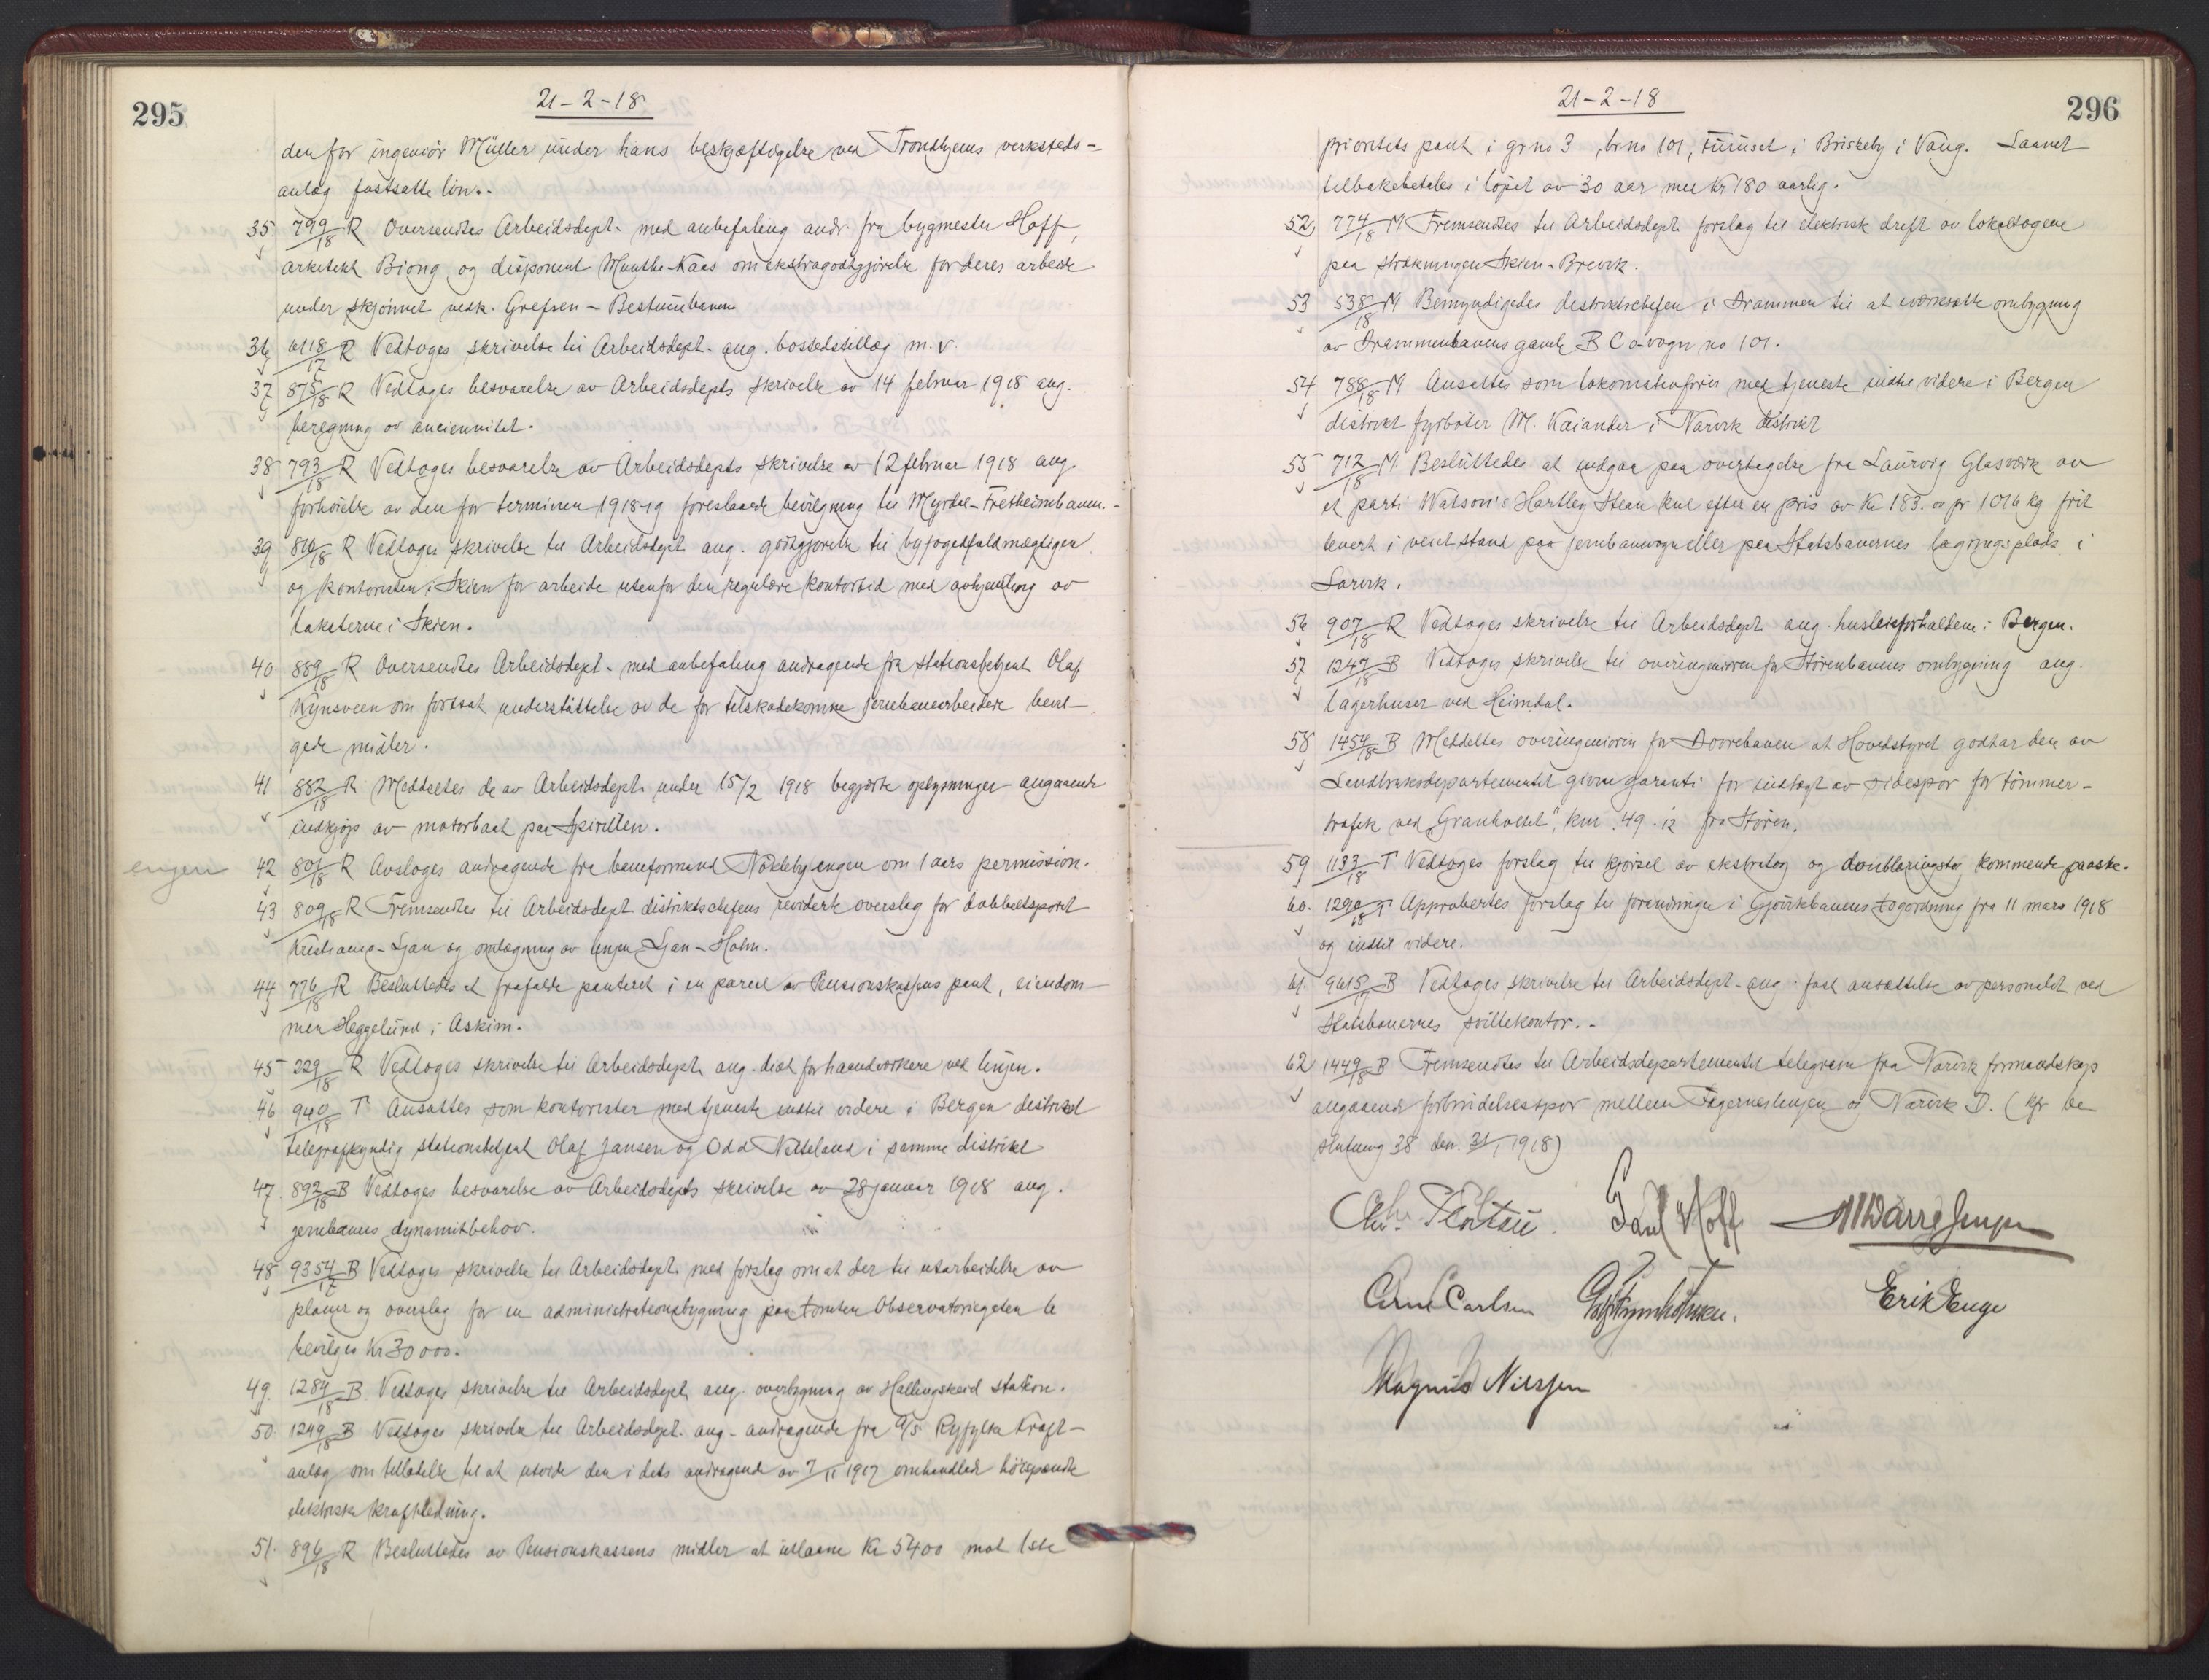 295
21-2-18
den for ingeniør Müller under hans beskjæftigelse ved Trondhjems verksteds-
anlæg fastsatte løn.-
35 799/18 R Oversendtes Arbeidsdept. med anbefaling andr. fra bygmester Hoff,
arkitekt Biong og disponent Munthe-Kaas om ekstragodtgjørelse for deres arbeide
under skjønnet vedk. Grefsen-Bestumbanen
36 6118/17 R Vedtoges skrivelse til Arbeidsdept. ang. bostedstillæg m.v.
37 875/18 R Vedtoges besvarelse av Arbeidsdepts skrivelse av 14 februar 1918 ang.
beregning av anciennitet.
38 793/18 R Vedtoges besvarelse av Arbeidsdepts skrivelse av 12 februar 1918 ang.
forhøielse av den for terminen 1918-19 foreslaaede bevilgning til Myrdal-Fretheimbanen.-
39 810/18 R Vedtoges skrivelse til Arbeidsdept. ang. godtgjørelse til byfogedfuldmægtigen
og kontoristen i Skien for arbeide utenfor den regulære kontortid med avhjemling av
taksterne i Skien.
40 889/18 R Oversendtes Arbeidsdept. med anbefaling andragende fra stationsbetjent Olaf
Kynsveen om fortsat understøttelse av de for tilskadekomne jernbanearbeidere bevil-
gede midler.
41 882/18 R Meddeltes de av Arbeidsdept. under 15/2 1918 begjærte oplysninger angaaende
indkjøp av motorbaat paa Spirillen.
engen 42 801/18 R Avsloges andragende fra baneformand Nökleby engen om 1 aars permission.
43 809/18 R Fremsendtes til Arbeidsdept. distriktschefens reviderte overslag for dobbeltsporet
Kristiania-Ljan og omlægning av linjen Ljan-Holm.
44 776/18 R Besluttedes at frafalde panteret i en parcel av Pensionskassens pant, eiendom-
men Heggelund i Askim.
45 229/18 R Vedtoges skrivelse til Arbeidsdept. ang. diæt for haandverkere ved linjen.
46 940/18 T Ansattes som kontorister med tjeneste indtil videre i Bergen distrikt
telegrafkyndig stationsbetjent Olaf Jansen og Odd Natteland i samme distrikt
47 892/18 B Vedtoges besvarelse av Arbeidsdepts skrivelse av 28 januar 1918 ang.
jernbanens dynamitbehov.
48 9354/17 B Vedtoges skrivelse til Arbeidsdept. med forslag om at der til utarbeidelse av
planer og overslag for en administrationsbygning paa tomten Observatoriegaten 6
bevilges kr 30 000.
49 1284/18 B Vedtoges skrivelse til Arbeidsdept. ang. overbygning av Hallingskeid station.
50 1249/18 B Vedtoges skrivelse til Arbeidsdept. ang. andragende fra A/S Ryfylke Kraft-
anlæg om tilladelse til at utvide den i dets andragende av 7/11 1917 omhandlede høispændte
elektriske kraftledning.
51. 896/18 R Besluttedes av Pensionskassens midler at utlaane Kr 5400 mot 1ste
296
21-2-18
prioritets pant i grno 3, brno 101, Furuset i Briskeby i Vang. Laanet
tilbakebetales i løpet av 30 aar med Kr. 180 aarlig.
52 774/18 M Fremsendtes til Arbeidsdept. forslag til elektrisk drift av lokaltogene
paa strækningen Skien-Brevik.
53 538/18 M Bemyndigedes distriktschefen i Drammen til at iverksætte ombygning
av Drammenbanens gamle B C o-vogn no 101.
54 788/18 M Ansattes som lokomotivfører med tjeneste indtil videre i Bergen
distrikt fyrbøter M. Kaiander i Narvik distrikt
55 712/18 M Besluttedes at indgaa paa overtagelse fra Laurvig Glasværk av
et parti Watson's Hartley Steam kul efter en pris av Kr 183.00 pr 1016 kg frit
levert i veiet stand paa jernbanevogn eller paa Statsbanernes lagringsplads i
Larvik.
56 907/18 R Vedtoges skrivelse til Arbeidsdept. ang. husleieforholdene i Bergen.
57 1247/18 B Vedtoges skrivelse til overingeniøren for Størenbanens ombygning ang.
lagerhuset ved Heimdal.
58 1454/18 B Meddeltes overingeniøren for Dovrebanen at Hovedstyret godtar den av
Landbruksdepartementet givne garanti for indlagt av sidespor for tømmer-
trafik ved "Granholtet", km. 49.12 fra Støren.
59 1133/18 T Vedtoges forslag til kjørsel av ekstratog og doubleringstog kommende paaske.
60. 1290/18 T Approbertes forslag til forandringer i Gjøvikbanens togordning fra 11 mars 1918
og indtil videre.
61. 9615/17 B Vedtoges skrivelse til Arbeidsdept. ang. fast ansættelse av personalet ved
Statsbanernes svillekontor.-
62 1449/18 B Fremsendtes til Arbeidsdepartementet telegram fra Narvik formandskap
angaaende forbindelsesspor mellem Fagerneslinjen og Narvik D. (kfr be-
slutning 38 den 31/1 1918)
Chr. Platou. Paul Hoff M Warre Jensen
Arne Carlsen Erik Enge
Magnus Nilssen